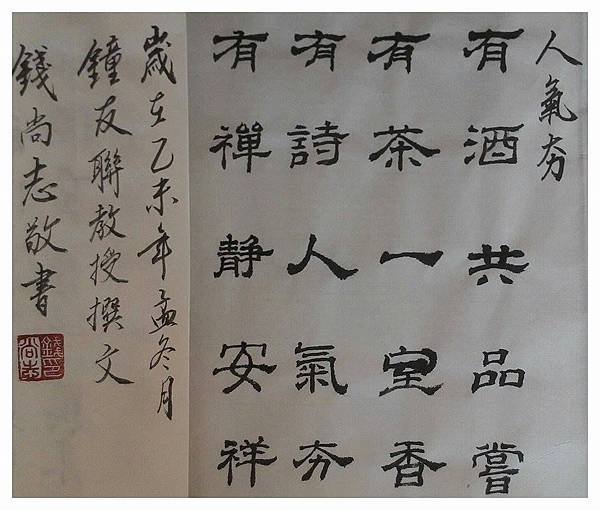 人氣夯
有酒共品嘗
有茶一室香
有詩人氣夯
有禪靜安祥
歲在乙未年孟冬月
鐘友聯教授撰文
錢尚志敬書